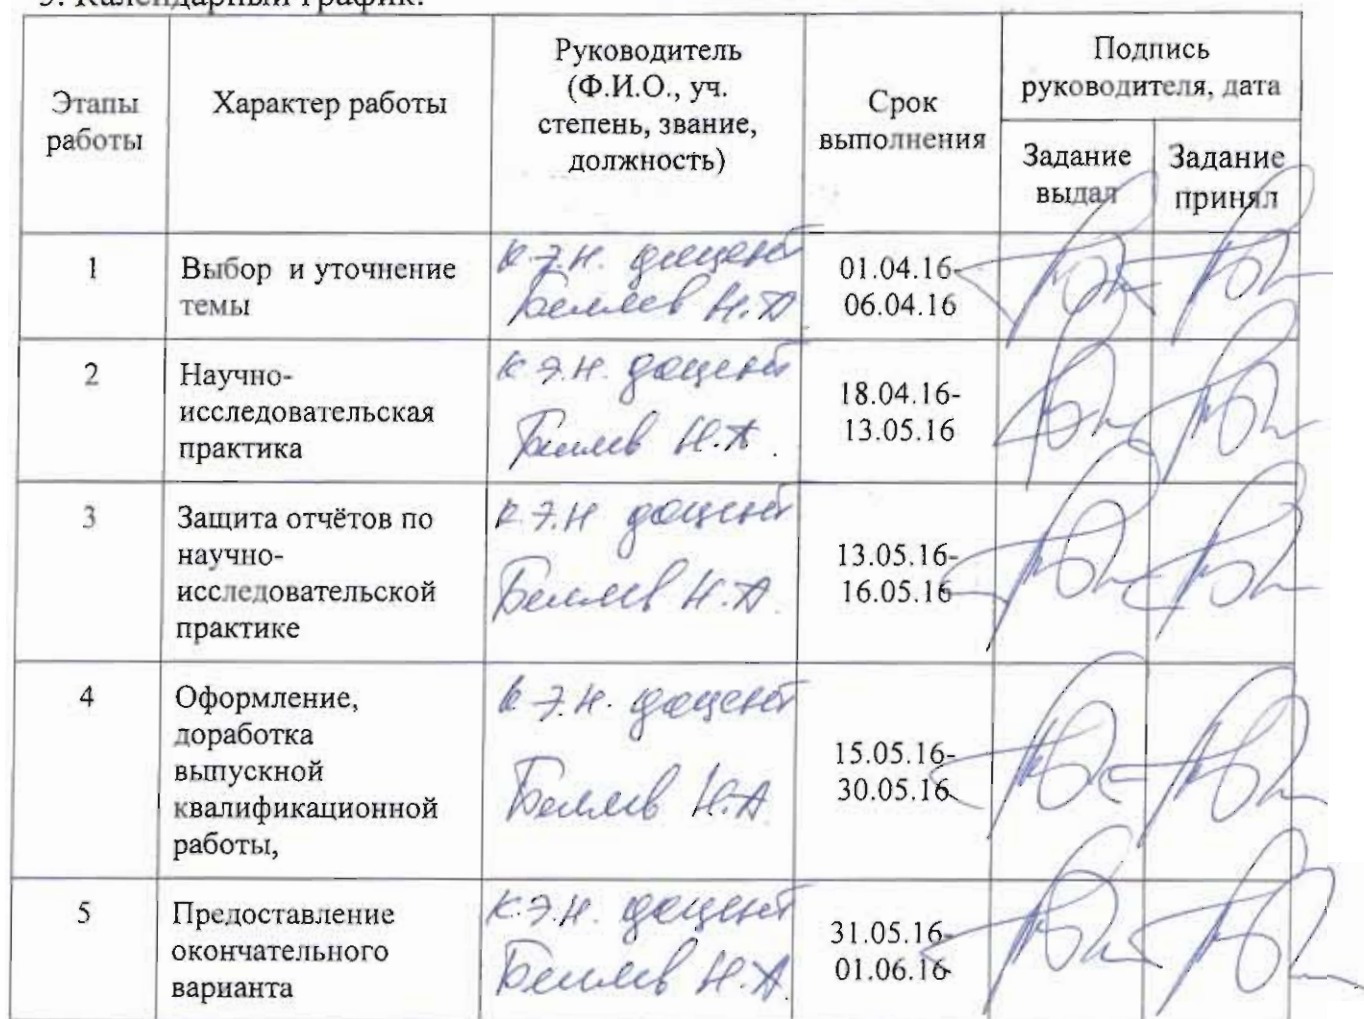 Календарный график.
Этапы
работы
Характер работы
Руководитель
(Ф.И.О., уч.
степень, звание,
должность)
Срок
выполнения
Подпись
руководителя, дата
Задание
выдал
Задание
принял
1
Выбор и уточнение
темы
к.э.н. доцент
Н.А
01.04.16-
06.04.16
2
Научно-
исследовательская
практика
к.э.н. доцент
Н.А.
18.04.16-
13.05.16
3
Защита отчётов по
научно-
исследовательской
практике
к.э.н доцент
Н.А.
13.05.16-
16.05.16
4
Оформление,
доработка
выпускной
квалификационной
работы,
к.э.н. доцент
Н.А
15.05.16-
30.05.16
5
Предоставление
окончательного
варианта
к.э.н. доцент
Н.А.
31.05.16-
01.06.16